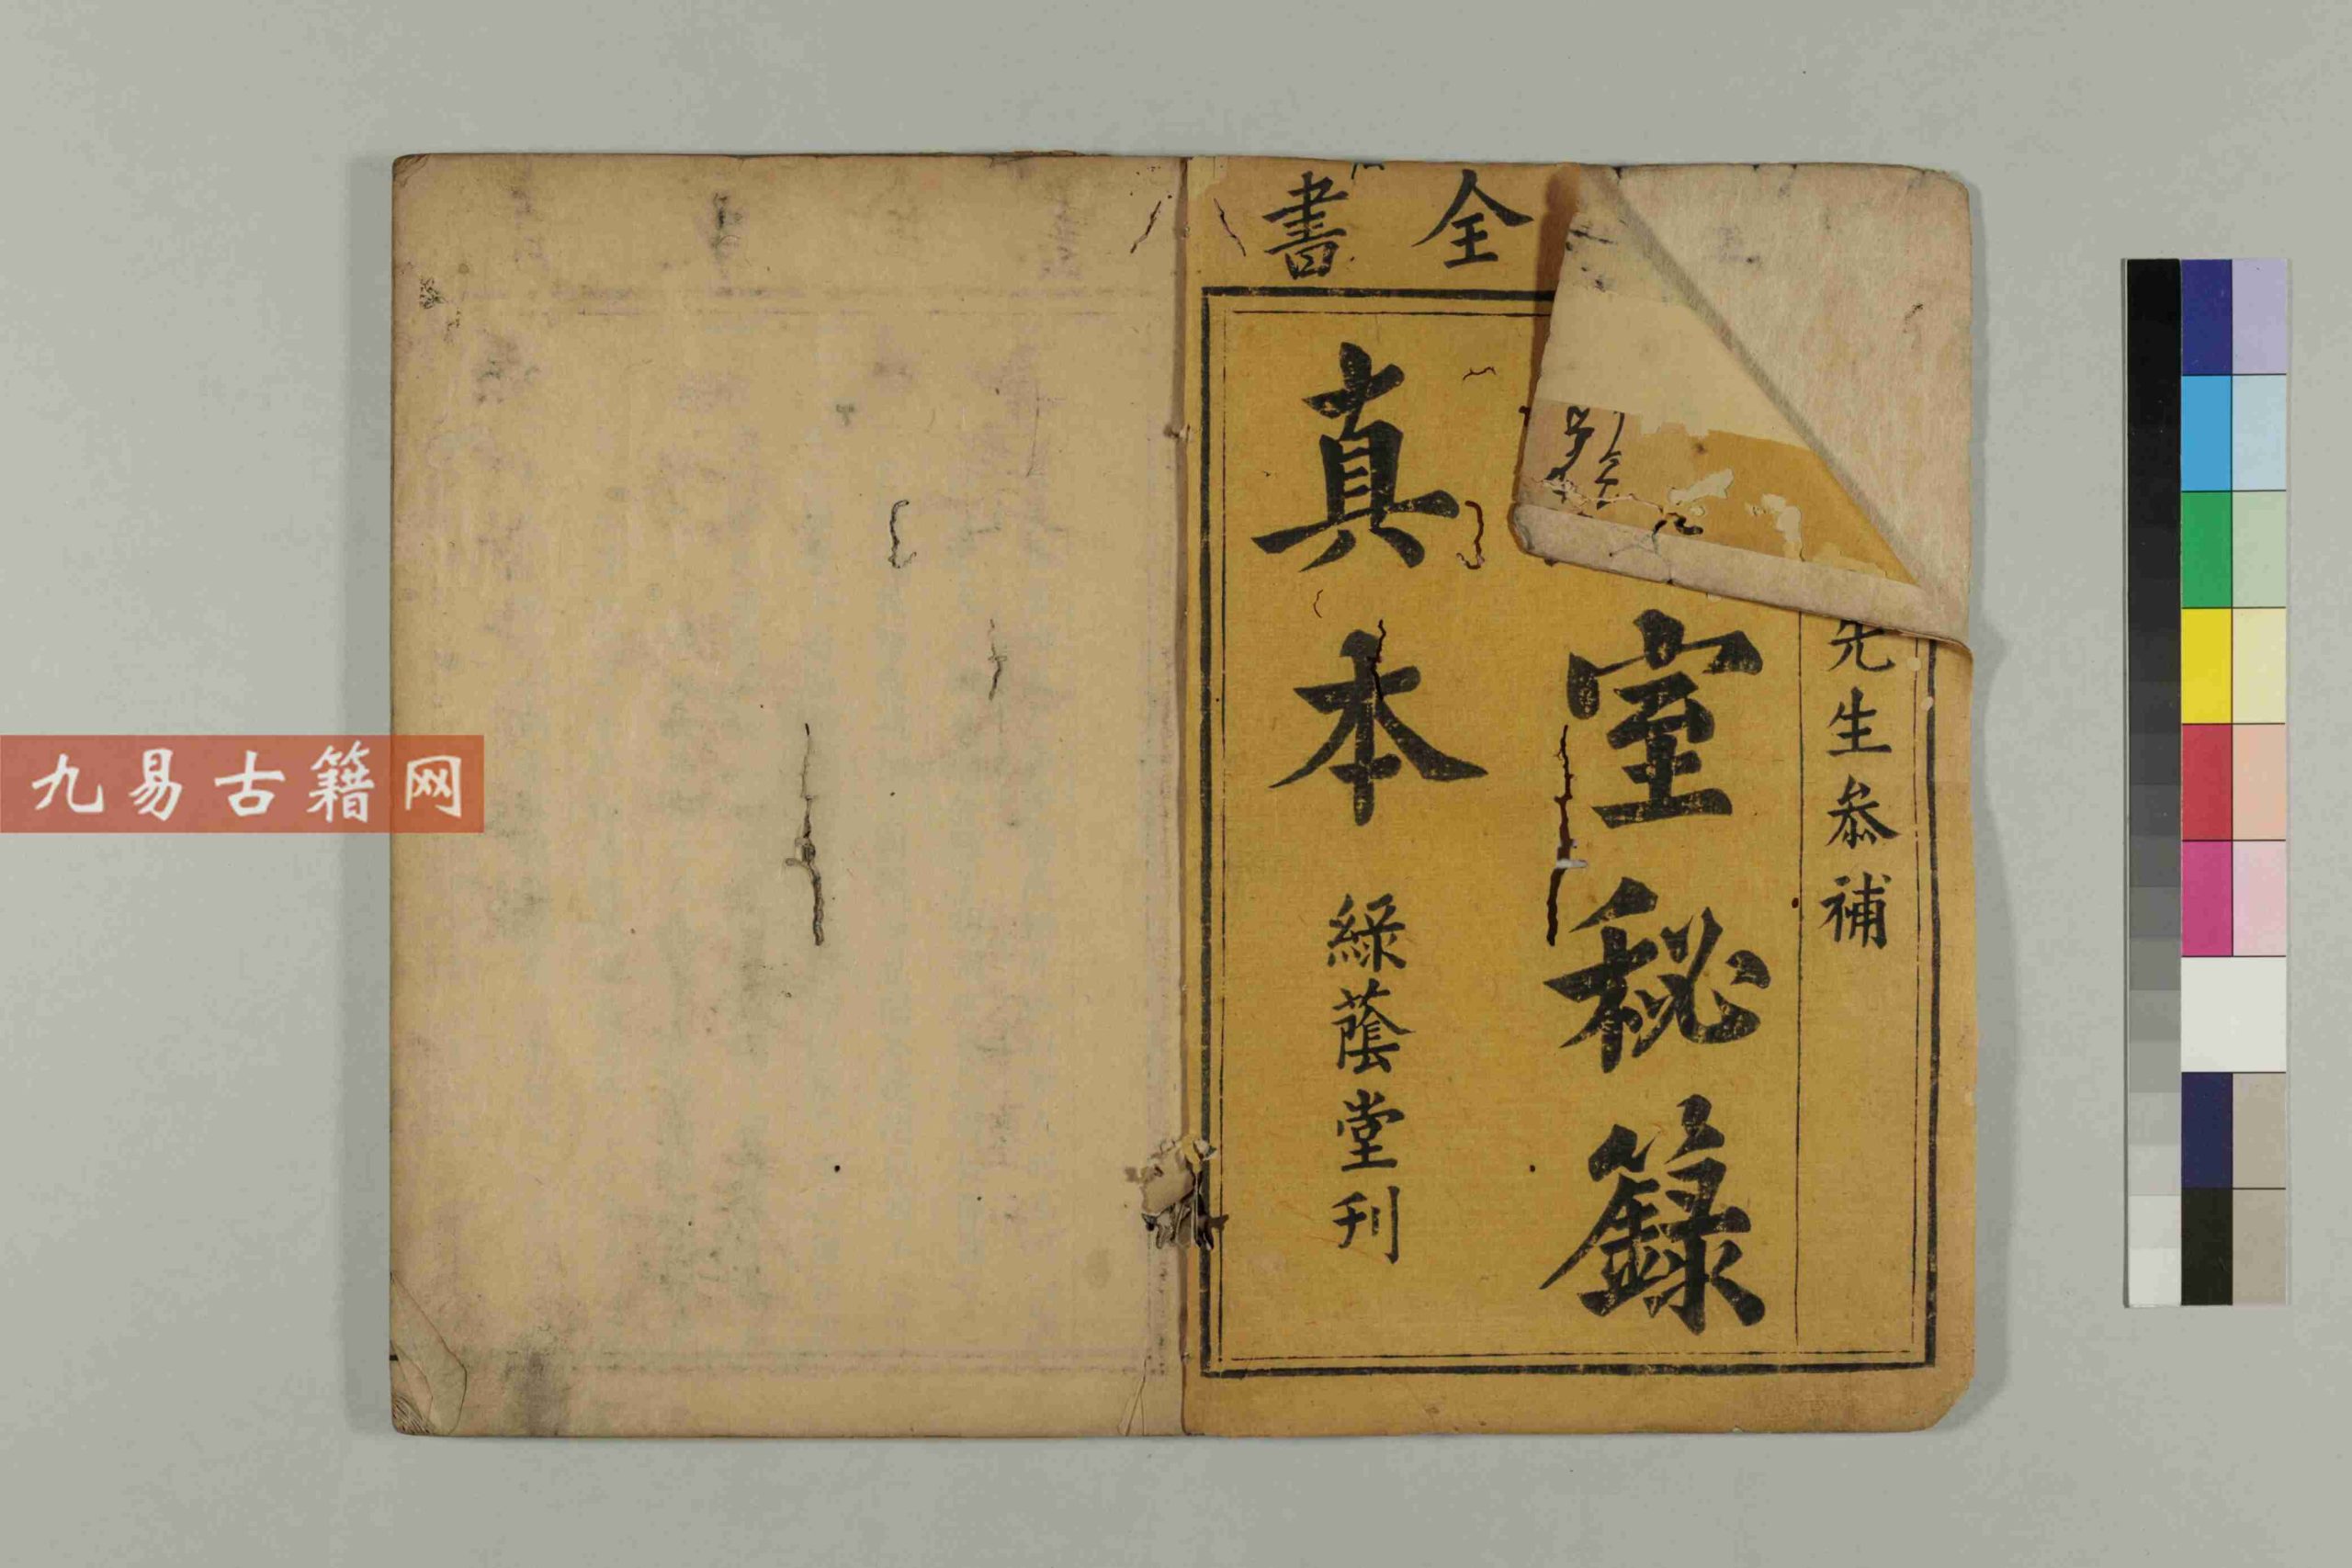 全書
先生叅補
室秘籙
真本
綠蔭堂刊
九易古籍网